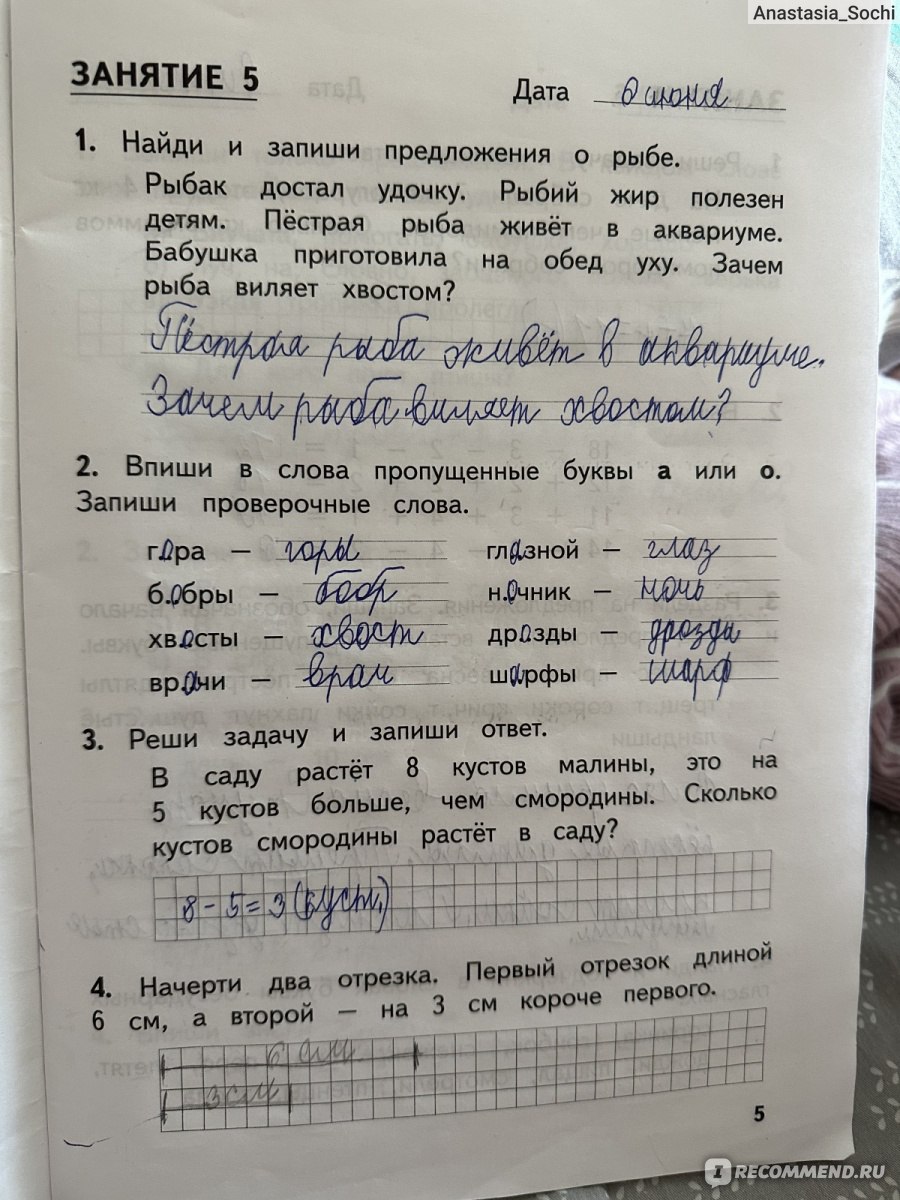 Anastasia_Sochi
ЗАНЯТИЕ 5
Дата 6 июня
1. Найди и запиши предложения о рыбе.
Рыбак достал удочку. Рыбий жир полезен
детям. Пёстрая рыба живёт в аквариуме.
Бабушка приготовила на обед уху. Зачем
рыба виляет хвостом?
Пёстрая рыба живёт в аквариуме.
Зачем рыба виляет хвостом?
2. Впиши в слова пропущенные буквы а или о.
Запиши проверочные слова.
гора — горы глазной — глаз
бобры — бобр ночник — ночь
хвосты — хвост дрозды — дрозд
врачи — врач шарфы — шарф
3. Реши задачу и запиши ответ.
В саду растёт 8 кустов малины, это на
5 кустов больше, чем смородины. Сколько
кустов смородины растёт в саду?
8 - 5 = 3 (куст.)
4. Начерти два отрезка. Первый отрезок длиной
6 см, а второй — на 3 см короче первого.
6 см
3 см
5
RECOMMEND.RU